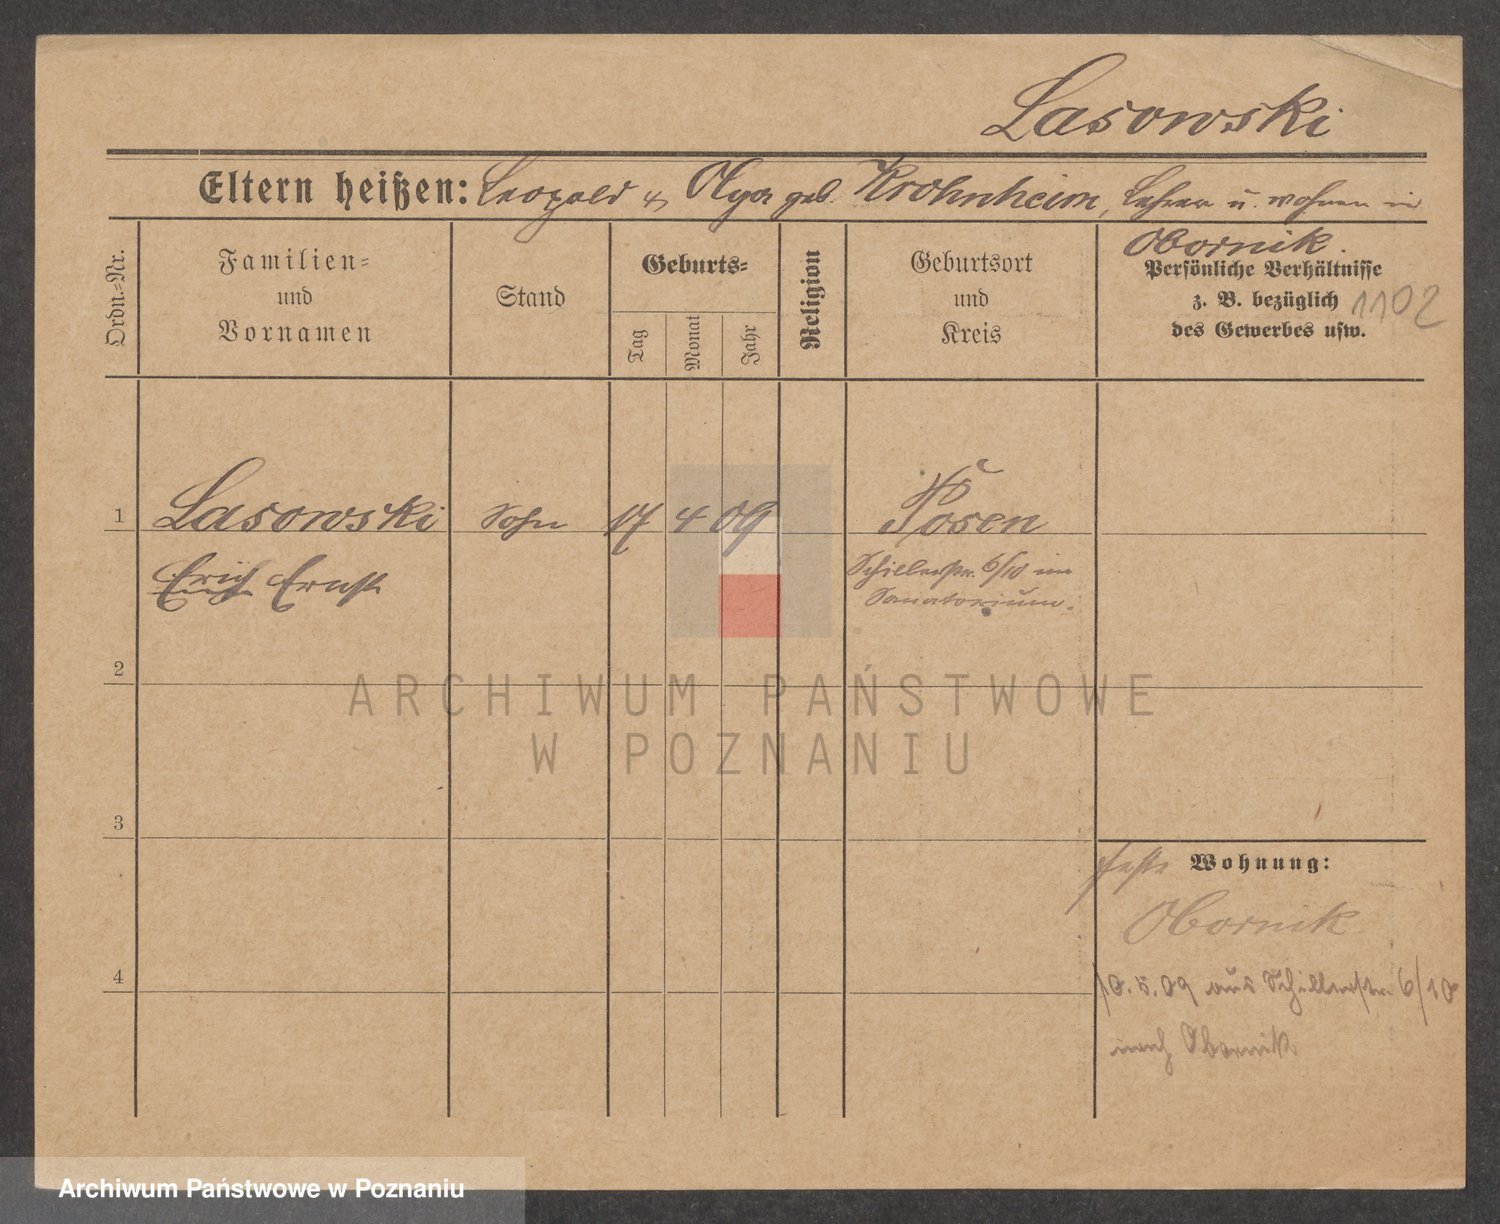 Lasowski
Eltern heißen: Leopold & Olga geb. Krohnheim, Lehrer u. wohnen in
Obornik.
Ordn.-Nr.
Familien-
und
Vornamen
Stand
Geburts-
Tag
Monat
Jahr
Religion
Geburtsort
und
Kreis
Persönliche Verhältnisse
z. B. bezüglich
des Gewerbes usw.
1102
1
Lasowski Sohn 17 4 09 Posen
Erich Ernst
Schillerstr. 6/10 im
Sanatorium.
2
ARCHIWUM PAŃSTWOWE
W POZNANIU
3
feste Wohnung:
Obornik
4
10.5.09 aus Schillerstr. 6/10
nach Obornik
Archiwum Państwowe w Poznaniu